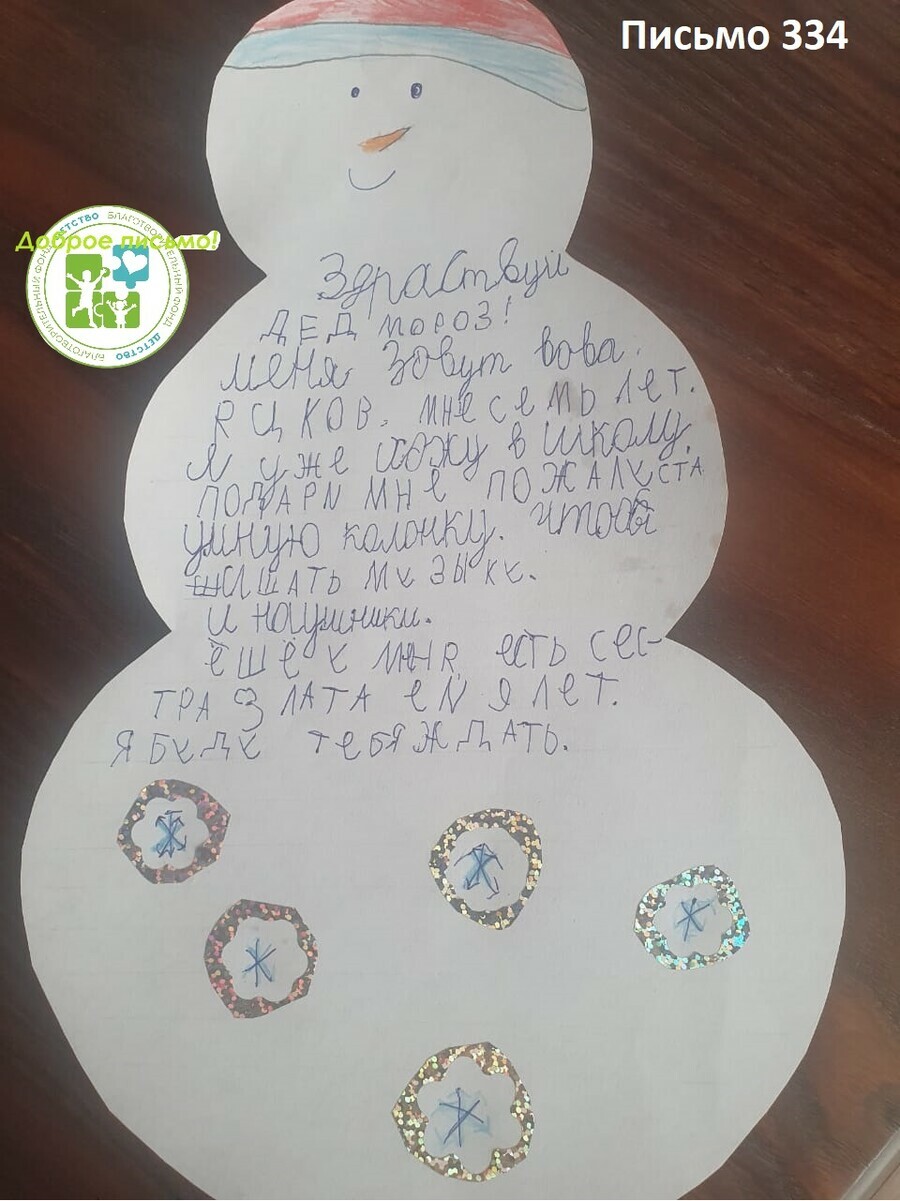 Письмо 334
Доброе письмо!
БЛАГОТВОРИТЕЛЬНЫЙ ФОНД ДЕТСТВО БЛАГОТВОРИТЕЛЬНЫЙ ФОНД ДЕТСТВО
Здраствуй
ДЕД МОРОЗ!
Меня Зовут вова.
ЯЦКОВ. мне семь лет.
Я уже хожу в школу.
ПОДАРИ МНЕ ПОЖАЛУСТА
умную колонку. чтобы
слишать музыку.
и наушники.
ЕШЁ У МНЯ есть сес-
ТРА ЗЛАТА ей 9 ЛЕТ.
Я БУДУ тебя ЖДАТЬ.